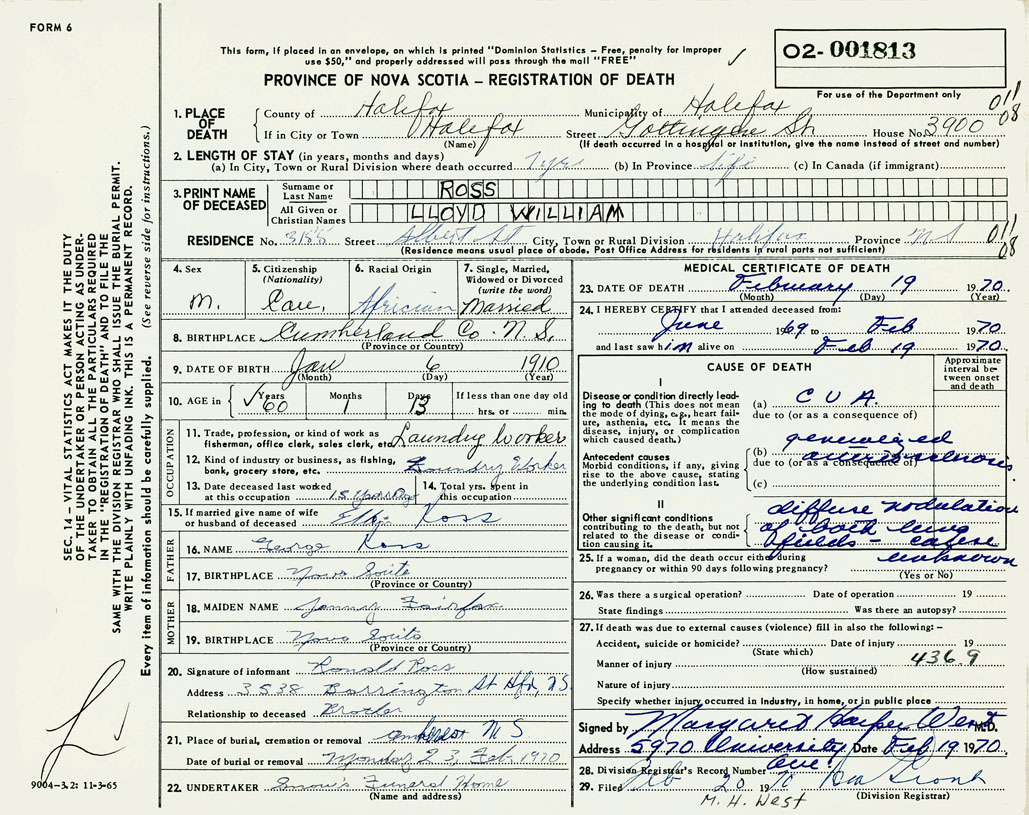 FORM 6
This form, if placed in an envelope, on which is printed "Dominion Statistics – Free, penalty for improper
use $50," and properly addressed will pass through the mail "FREE"
02-001813
For use of the Department only
PROVINCE OF NOVA SCOTIA – REGISTRATION OF DEATH
011
08
1. PLACE OF DEATH
County of Halifax Municipality of Halifax
If in City or Town Halifax Street Gottingen St House No. 3900
(Name) (If death occurred in a hospital or institution, give the name instead of street and number)
2. LENGTH OF STAY (in years, months and days)
(a) In City, Town or Rural Division where death occurred 7 yrs (b) In Province life (c) In Canada (if immigrant)
3. PRINT NAME OF DECEASED
Surname or Last Name ROSS
All Given or Christian Names LLOYD WILLIAM
RESIDENCE No. 3188 Street Albert St City, Town or Rural Division Halifax Province NS
(Residence means usual place of abode. Post Office Address for residents in rural parts not sufficient)
011
08
4. Sex M.
5. Citizenship (Nationality) Can.
6. Racial Origin Africian
7. Single, Married, Widowed or Divorced (write the word) Married
8. BIRTHPLACE Cumberland Co. N.S.
(Province or Country)
9. DATE OF BIRTH Jan 6 1910
(Month) (Day) (Year)
10. AGE in Years 60 Months 1 Days 13 If less than one day old hrs. or min.
OCCUPATION
11. Trade, profession, or kind of work as fisherman, office clerk, sales clerk, etc. Laundry Worker
12. Kind of industry or business, as fishing, bank, grocery store, etc. Laundry Worker
13. Date deceased last worked at this occupation 1 14. Total yrs. spent in this occupation
15. If married give name of wife or husband of deceased Ross
FATHER
16. NAME George Ross
17. BIRTHPLACE Nova
(Province or Country)
MOTHER
18. MAIDEN NAME Fairfax
19. BIRTHPLACE Nova
(Province or Country)
20. Signature of informant Ronald Ross
Address 3538 Barrington St Hfx, NS
Relationship to deceased Brother
21. Place of burial, cremation or removal Amherst N S
Date of burial or removal Monday 23, Feb 1970
22. UNDERTAKER Snow's Funeral Home
(Name and address)
MEDICAL CERTIFICATE OF DEATH
23. DATE OF DEATH February 19 1970
(Month) (Day) (Year)
24. I HEREBY CERTIFY that I attended deceased from:
June 1969 to Feb 1970
and last saw him alive on Feb 19 1970
CAUSE OF DEATH
Approximate interval between onset and death
I
Disease or condition directly leading to death (This does not mean the mode of dying, e.g., heart failure, asthenia, etc. It means the disease, injury, or complication which caused death.)
(a) C V A.
due to (or as a consequence of)
Antecedent causes
Morbid conditions, if any, giving rise to the above cause, stating the underlying condition last.
(b) generalized arteriosclerosis
due to (or as a consequence of)
(c)
II
Other significant conditions contributing to the death, but not related to the disease or condition causing it.
diffuse nodulation
of both lung
fields – cause
unknown
25. If a woman, did the death occur either during pregnancy or within 90 days following pregnancy?
(Yes or No)
26. Was there a surgical operation? Date of operation 19
State findings Was there an autopsy?
27. If death was due to external causes (violence) fill in also the following:–
Accident, suicide or homicide? Date of injury 19
(State which)
Manner of injury 436.9
(How sustained)
Nature of injury
Specify whether injury occurred in Industry, in home, or in public place
Signed by Margaret Harper West M.D.
Address 5970 University Ave. Date Feb 19 1970.
28. Division Registrar's Record Number
29. Filed Feb 20 1970
(Division Registrar)
M. H. West
SEC. 14 – VITAL STATISTICS ACT MAKES IT THE DUTY
OF THE UNDERTAKER OR PERSON ACTING AS UNDER-
TAKER TO OBTAIN ALL THE PARTICULARS REQUIRED
IN THE "REGISTRATION OF DEATH" AND TO FILE THE
SAME WITH THE DIVISION REGISTRAR WHO SHALL ISSUE THE BURIAL PERMIT.
WRITE PLAINLY WITH UNFADING INK. THIS IS A PERMANENT RECORD.
Every item of information should be carefully supplied. (See reverse side for instructions.)
9004-3.2: 11-3-65